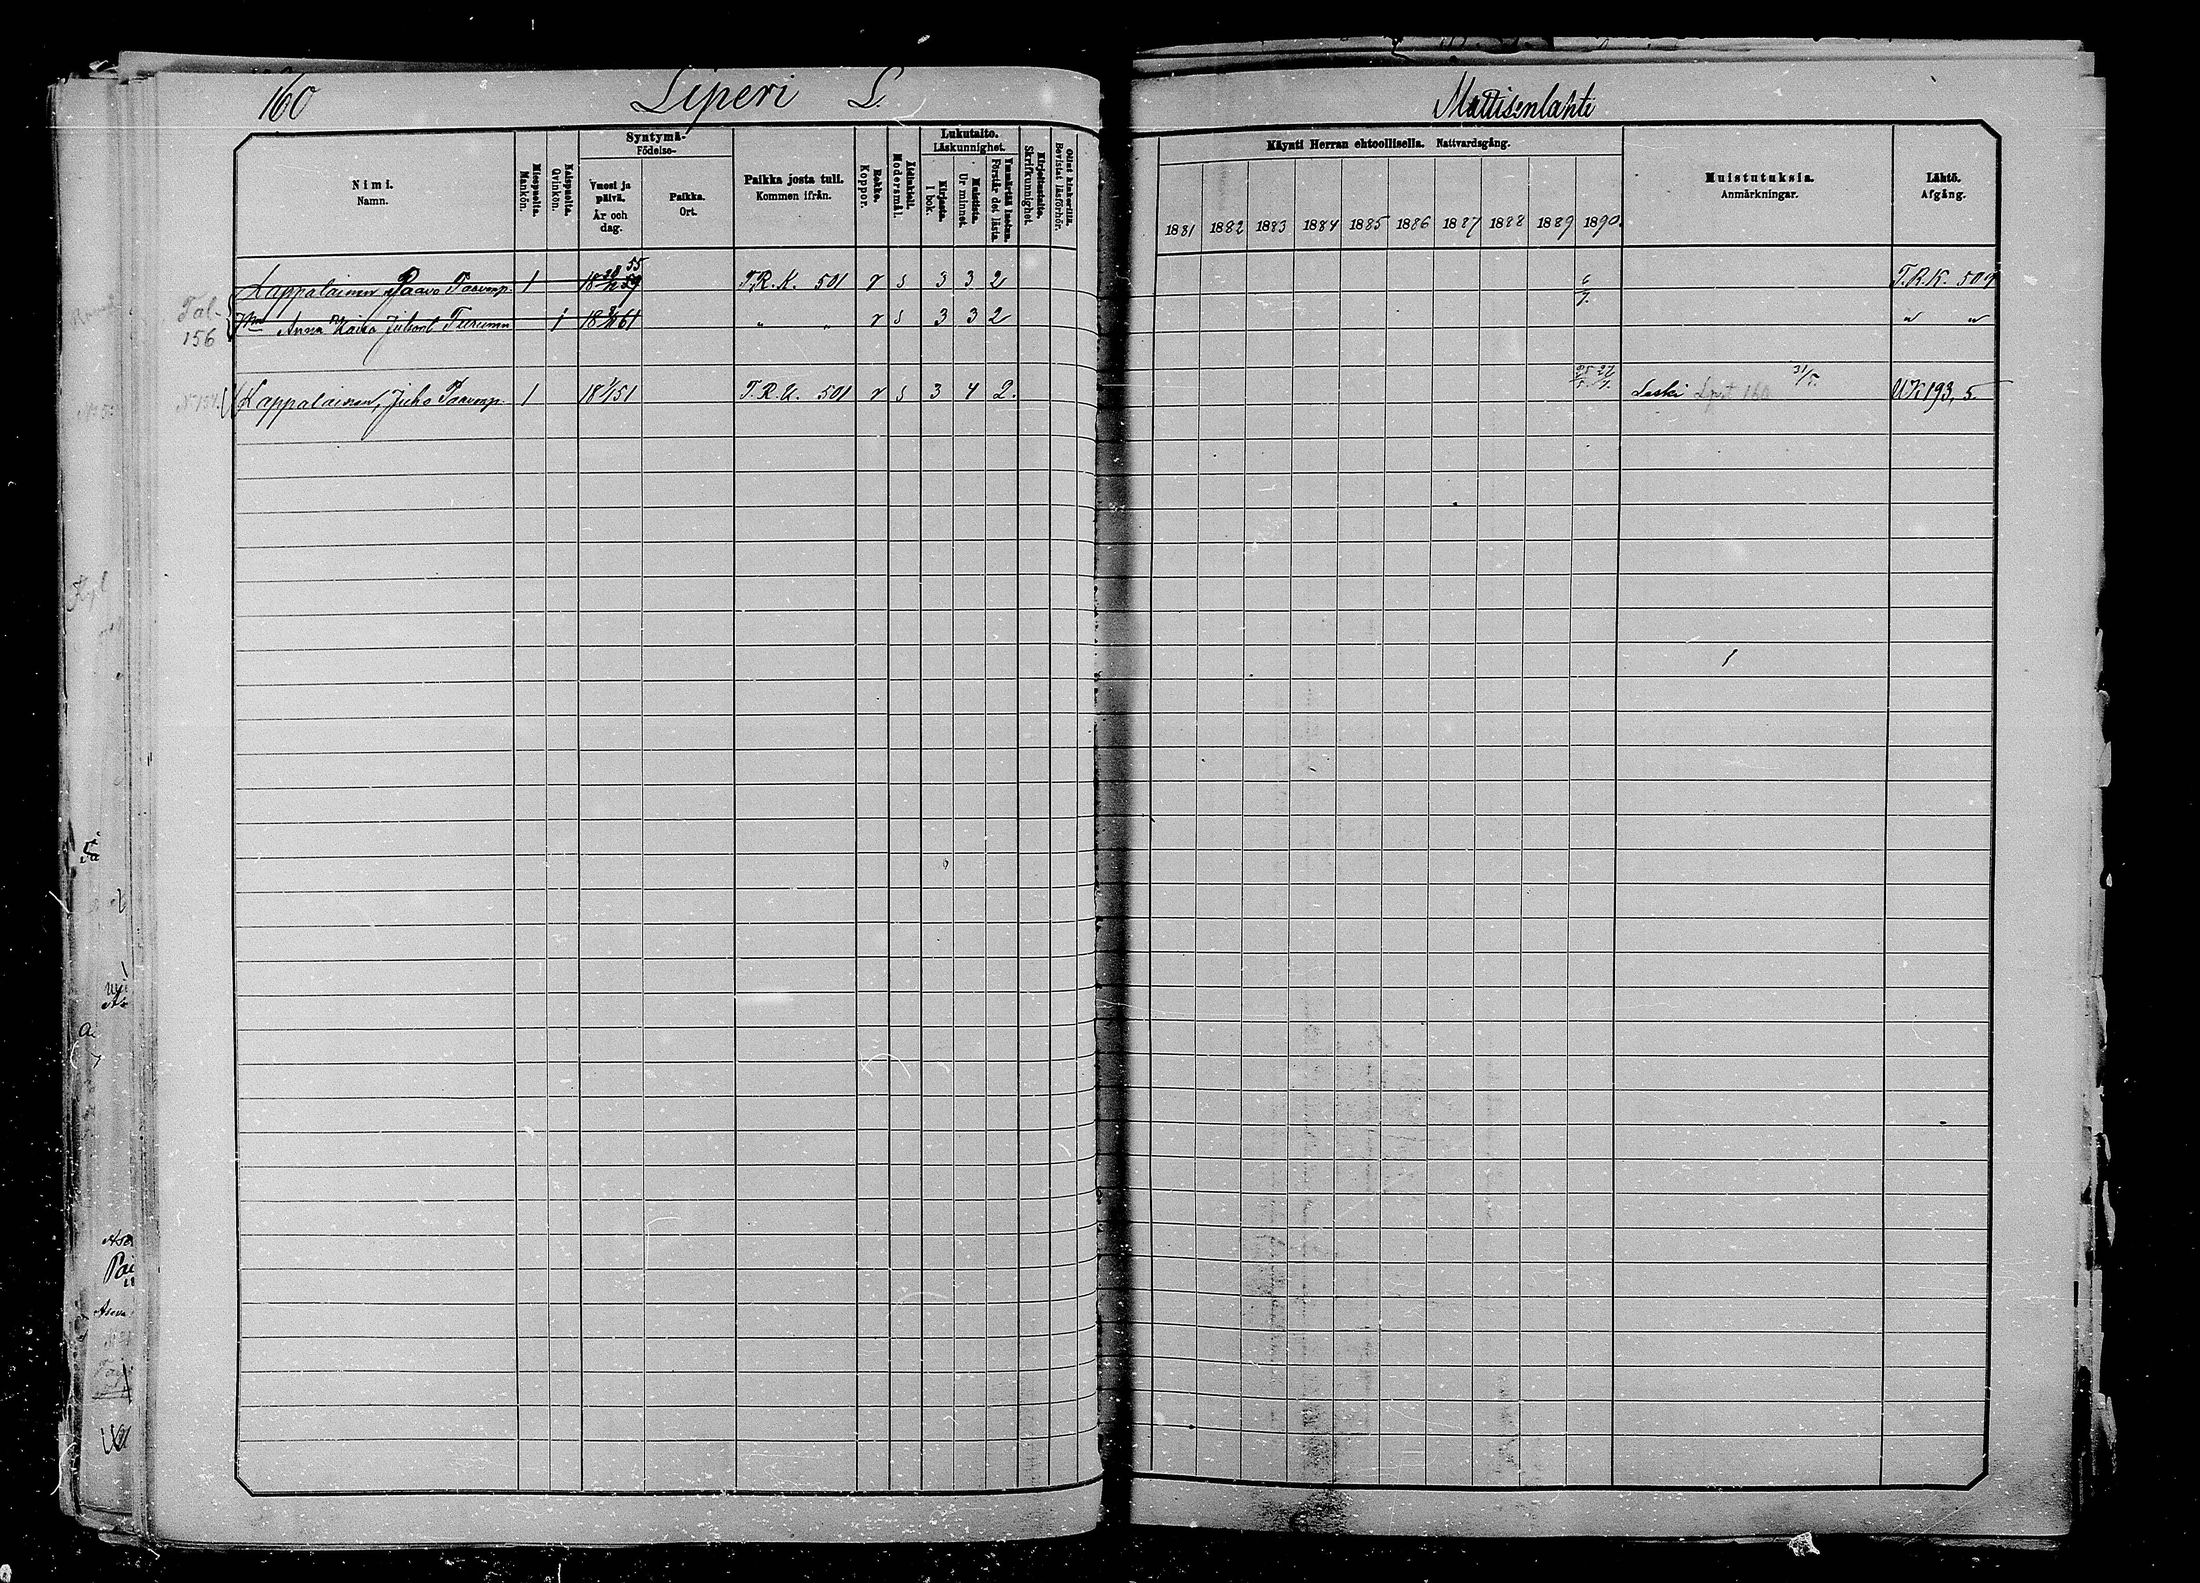 160
Liperi L.
Mattisenlahti
Nimi.
Namn.
Miespuolta.
Mankön.
Vaispuolta.
Qvinkön.
Syntymä-
Födelse-
Vuosi ja päivä.
År och dag.
Paikka.
Ort.
Paikka josta tuli.
Kommen ifrån.
Rokko.
Koppor.
Äidinkieli.
Modersmål.
Lukutaito.
Läskunnighet.
Kirjasta.
I bok.
Muistista.
Ur minnet.
Ymmärtää luetun.
Förstår det lästa.
Kirjoitustaito.
Skrifkunnighet.
Ollut kinkerillä.
Bevistat läsförhör.
Käynti Herran ehtoollisella. Nattvardsgång.
1881 1882 1883 1884 1885 1886 1887 1888 1889 1890.
Muistutuksia.
Anmärkningar.
Lähtö.
Afgång.
Lappalainen, Paavo Paavonp. 1 T.R.K. 501 r s 3 3 2 T.R.K. 504
Tal. 156
Anna Kaisa Juhont Turunen 1 61 " " r s 3 3 2 " "
Lappalainen, Juho Paavonp. 1 18 1/1 51 T.R.K. 501 r s 3 4 2. Leski 160 31/5. 193, 5.